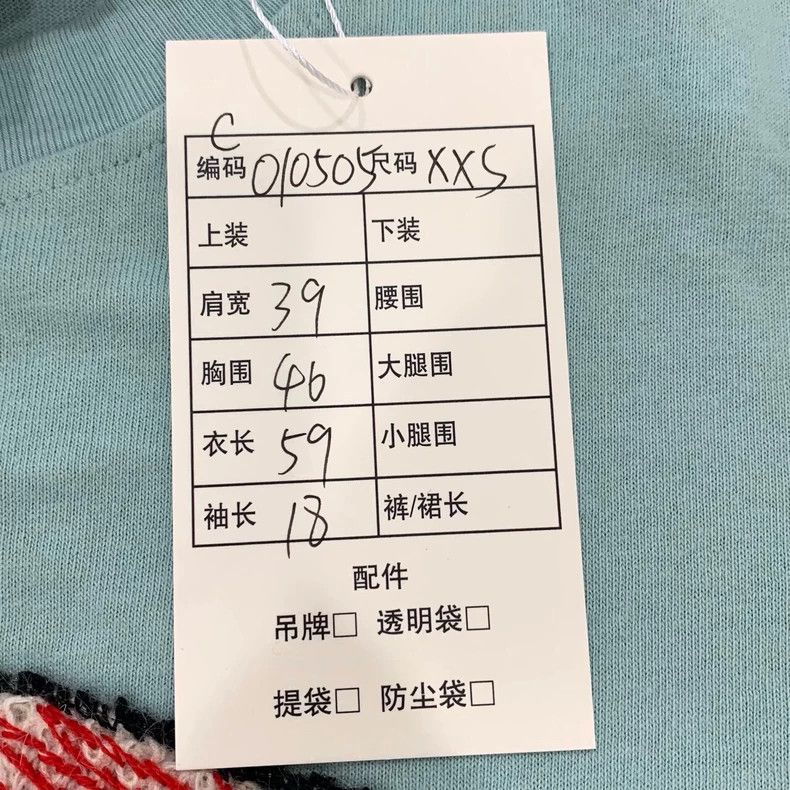 C
编码 010505 尺码 XXS
上装 下装
肩宽 39 腰围
胸围 46 大腿围
衣长 59 小腿围
袖长 18 裤/裙长
配件
吊牌□ 透明袋□
提袋□ 防尘袋□